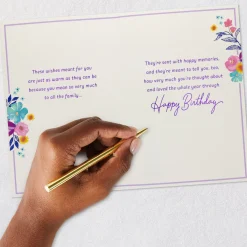 These wishes meant for you
are just as warm as they can be
because you mean so very much
to all the family...
They're sent with happy memories,
and they're meant to tell you, too,
how very much you're thought about
and loved the whole year through
Happy Birthday